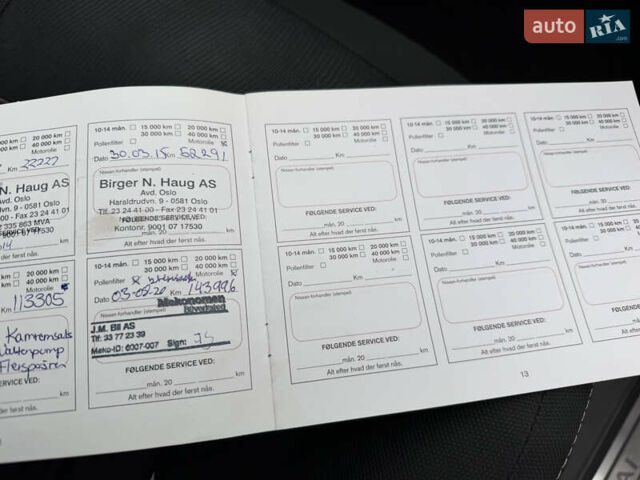 auto RIA.com
20 000 km
30 000 km 40 000 km
Motorolie
Km 22227
N. Haug AS
Avd. Oslo
9 - 0581 Oslo
Fax 23 24 41 01
335 863 MVA
SERVICE VED:
07 17530
hvad der først nås.
10-14 mån. 15 000 km 20 000 km
30 000 km 40 000 km
Pollenfilter Motorolie
Dato 30.03.15 Km 52291
Nissan forhandler (stempel)
Birger N. Haug AS
Avd. Oslo
Haraldrudvn. 9 - 0581 Oslo
Tlf. 23 24 41 00 - Fax 23 24 41 01
FØLGENDE SERVICE VED:
Kontonr. 9001 07 17530
Alt efter hvad der først nås.
20 000 km
40 000 km
Motorolie
Km 113305
Kamremsats
Vattenpump
SERVICE VED:
mån. 20 km
hvad der først nås.
10-14 mån. 15 000 km 20 000 km
30 000 km 40 000 km
Pollenfilter Motorolie
Dato 03-09-20 Km 143996
Mekonomen
J.M. Bil AS
Tlf: 33 77 23 39
Meko-ID: 6007-007 Sign:
FØLGENDE SERVICE VED:
mån. 20 km
Alt efter hvad der først nås.
10-14 mån. 15 000 km 20 000 km
30 000 km 40 000 km
Pollenfilter Motorolie
Dato Km
Nissan forhandler (stempel)
FØLGENDE SERVICE VED:
mån. 20 km
Alt efter hvad der først nås.
10-14 mån. 15 000 km 20 000 km
30 000 km 40 000 km
Pollenfilter Motorolie
Dato Km
Nissan forhandler (stempel)
FØLGENDE SERVICE VED:
mån. 20 km
Alt efter hvad der først nås.
10-14 mån. 15 000 km
30 000 km
Pollenfilter
Dato
Nissan forhandler (stempel)
FØLGENDE SERVICE
mån. 20
Alt efter hvad der først
10-14 mån. 15 000 km 20 000 km
30 000 km 40 000 km
Pollenfilter Motorolie
Dato Km
Nissan forhandler (stempel)
FØLGENDE SERVICE VED:
mån. 20 km
Alt efter hvad der først nås.
10-14 mån. 15 000 km 20 000 km
30 000 km 40 000 km
Pollenfilter Motorolie
Dato Km
Nissan forhandler (stempel)
FØLGENDE SERVICE VED:
mån. 20 km
Alt efter hvad der først nås.
10-14 mån. 15 000
30 000
Pollenfilter
Dato
Nissan forhandler
FØLGENDE
Alt efter
13